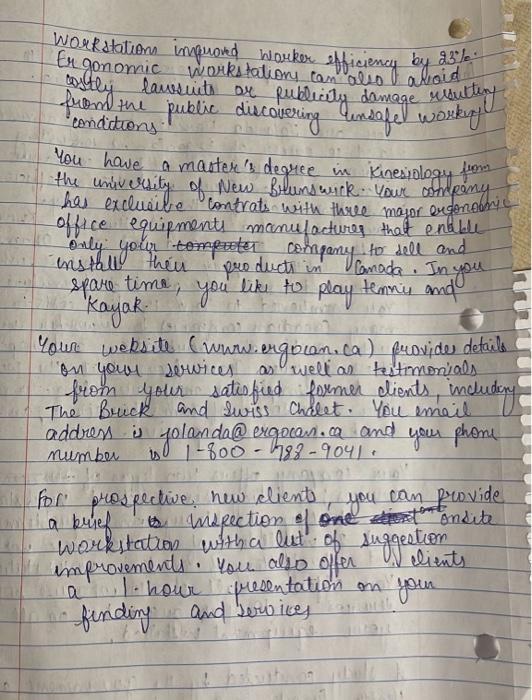 Workstations improved worker efficiency by 23%.
Ergonomic workstations can also avoid
costly lawsuits or publicity damage resulting
from the public discovering unsafe working
conditions.
You have a master's degree in Kinesiology from
the university of New Brunswick. Your company
has exclusive contrats with three major ergonomic
office equipments manufactures that enable
only your computer company to sell and
install their products in Canada. In you
spare time, you like to play tennis and
Kayak.
Your website (www.ergocan.ca) provides details
on your services as well as testimonials
from your satisfied former clients, including
The Brick and Swiss Chalet. You email
address is yolanda@ergocan.ca and your phone
number is 1-800-788-9041.
For prospective new clients, you can provide
a brief inspection of one onsite
workstation with a list of suggestion
improvements. You also offer clients
a 1-hour presentation on your
finding and services